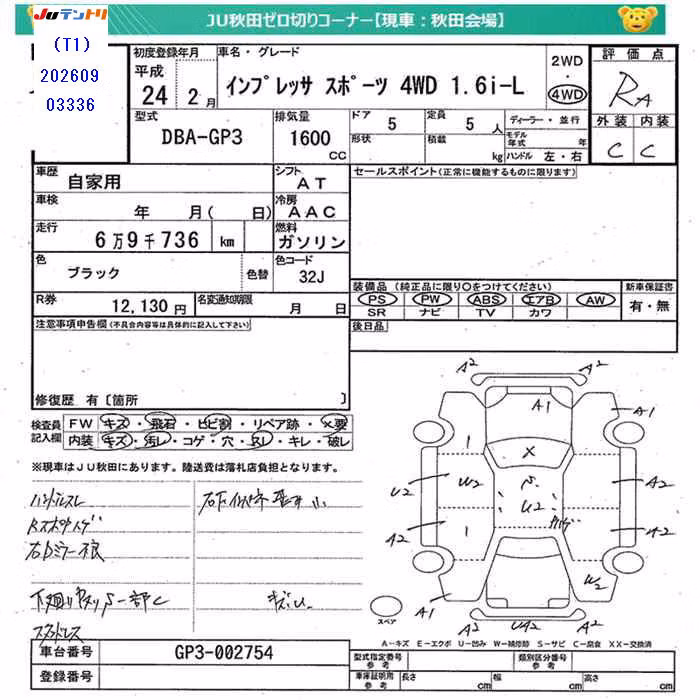 JUテントリ
JU秋田ゼロ切りコーナー【現車：秋田会場】
(T1)
202609
03336
初度登録年月
平成
24 2月
車名・グレード
インプレッサ スポーツ 4WD 1.6i-L
2WD
・
4WD
評価点
RA
外装 内装
C C
型式
DBA-GP3
排気量
1600
CC
ドア
5
形状
定員
5 人
積載
kg
ディーラー・並行
モデル年式 年
ハンドル 左・右
車歴
自家用
シフト
AT
車検
年 月( 日)
冷房
AAC
走行
6万9千736 km
燃料
ガソリン
色
ブラック
色替
色コード
32J
R券
12,130円
名変通知期限
月 日
セールスポイント(正常に機能するものに限ります)
装備品 (純正品に限り○をつけてください)
PS PW ABS エアB AW
SR ナビ TV カワ
新車保証書
有・無
後日品
注意事項申告欄(不具合内容等は具体的に記入して下さい)
修復歴 有〔箇所 〕
検査員記入欄
FW キズ・飛石・ヒビ割・リペア跡・×要
内装 キズ・汚レ・コゲ・穴・スレ・キレ・破レ
※現車はJU秋田にあります。陸送費は落札店負担となります。
ハンドルスレ
キズ
スタッドレス
A2 A2
A1 A1
1
X
U2 W2 A2
U2
A2 1 A2
W2
A1
A2 UA2 A2
スペア
A-キズ E-エクボ U-凹み W-補修跡 S-サビ C-腐食 XX-交換済
車台番号
GP3-002754
登録番号
型式指定番号
参考
類別区分番号
参考
車庫証明用
参考
長さ cm
幅 cm
高さ cm